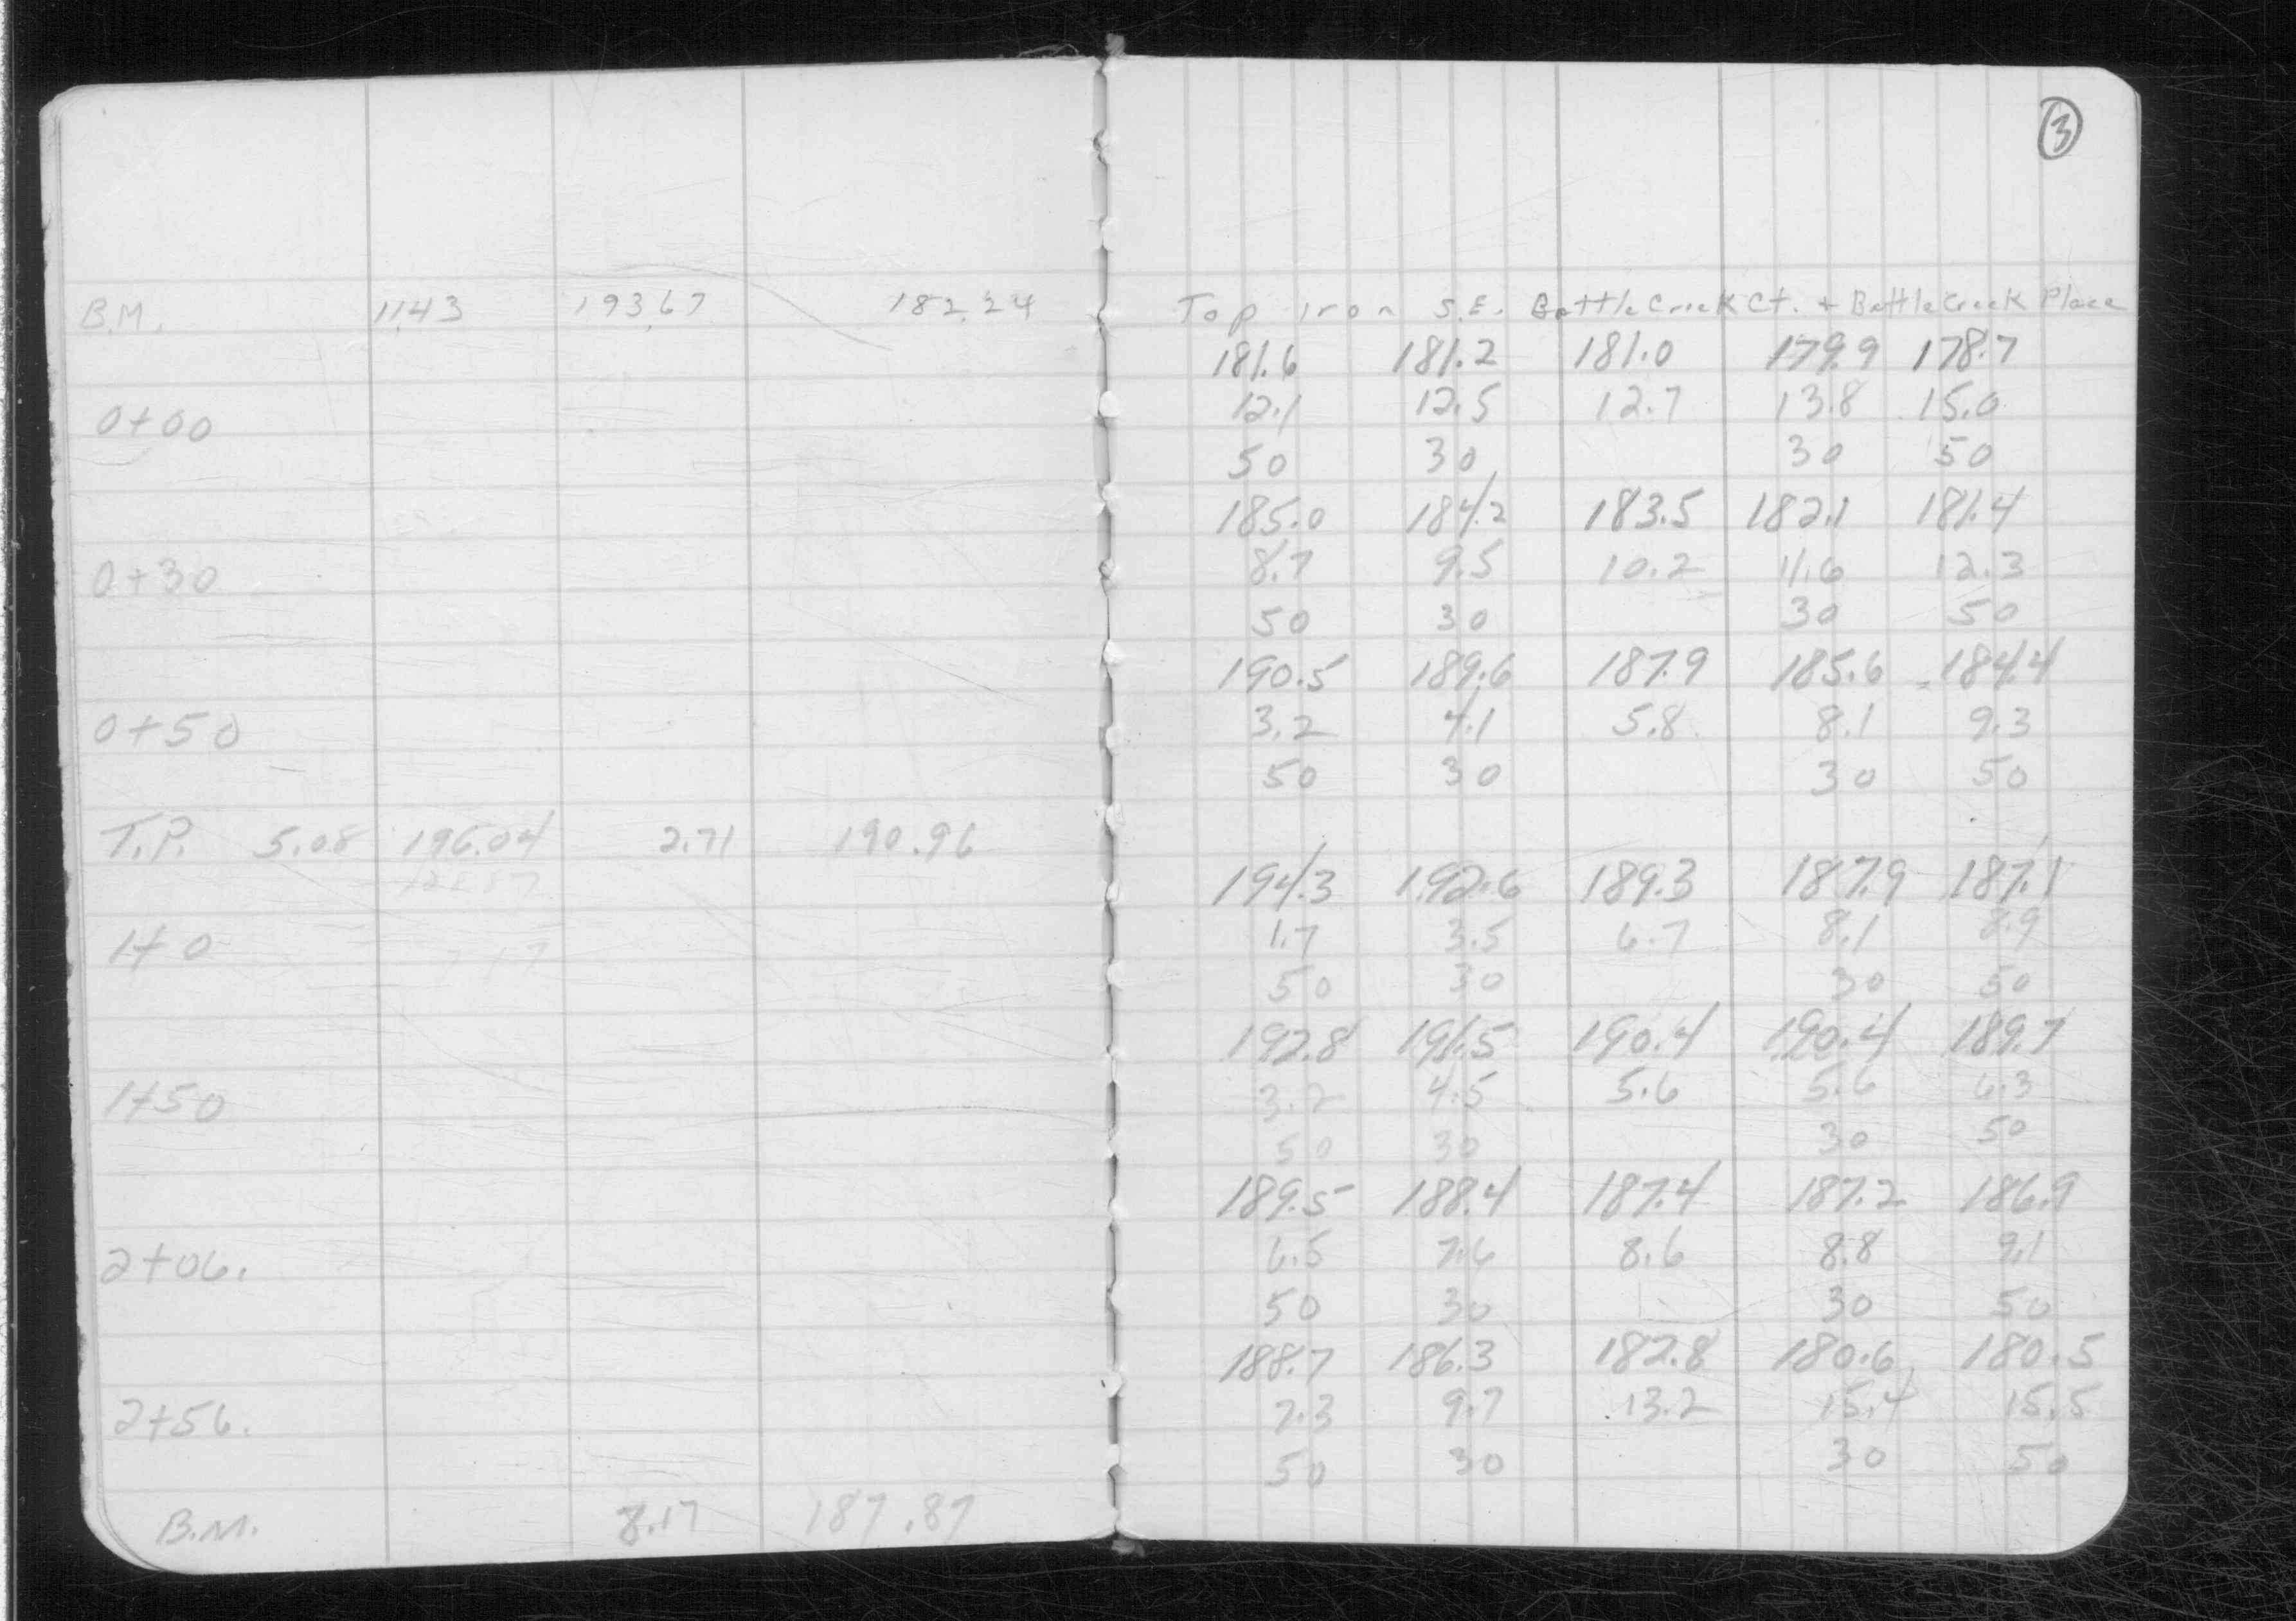 3
B.M. 11.43 193.67 182.24 Top iron S.E. Battle Creek Ct. + Battle Creek Place
181.6 181.2 181.0 179.9 178.7
0+00 12.1 12.5 12.7 13.8 15.0
50 30 30 50
185.0 184.2 183.5 182.1 181.4
0+30 8.7 9.5 10.2 11.6 12.3
50 30 30 50
190.5 189.6 187.9 185.6 184.4
0+50 3.2 4.1 5.8 8.1 9.3
50 30 30 50
T.P. 5.08 196.04 2.71 190.96
194.3 192.6 189.3 187.9 187.1
1+0 1.7 3.5 6.7 8.1 8.9
50 30 30 50
192.8 191.5 190.4 190.4 189.7
1+50 3.2 4.5 5.6 5.6 6.3
50 30 30 50
189.5 188.4 187.4 187.2 186.9
2+06. 6.5 7.6 8.6 8.8 9.1
50 30 30 50
188.7 186.3 182.8 180.6 180.5
2+56. 7.3 9.7 13.2 15.4 15.5
50 30 30 50
B.M. 8.17 187.87